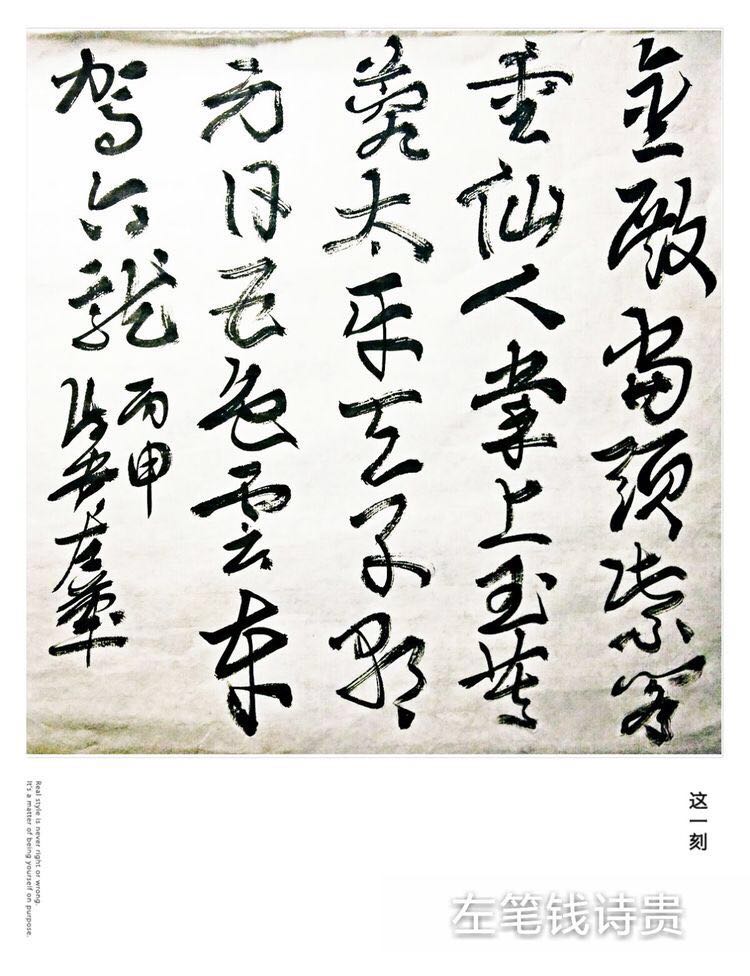 金殿當頭紫閣
重仙人掌上玉芙
蓉太平天子朝
元日五色雲車
駕六龍
丙申
左筆
这一刻
Real style is never right or wrong.
It's a matter of being yourself on purpose.
左笔钱诗贵